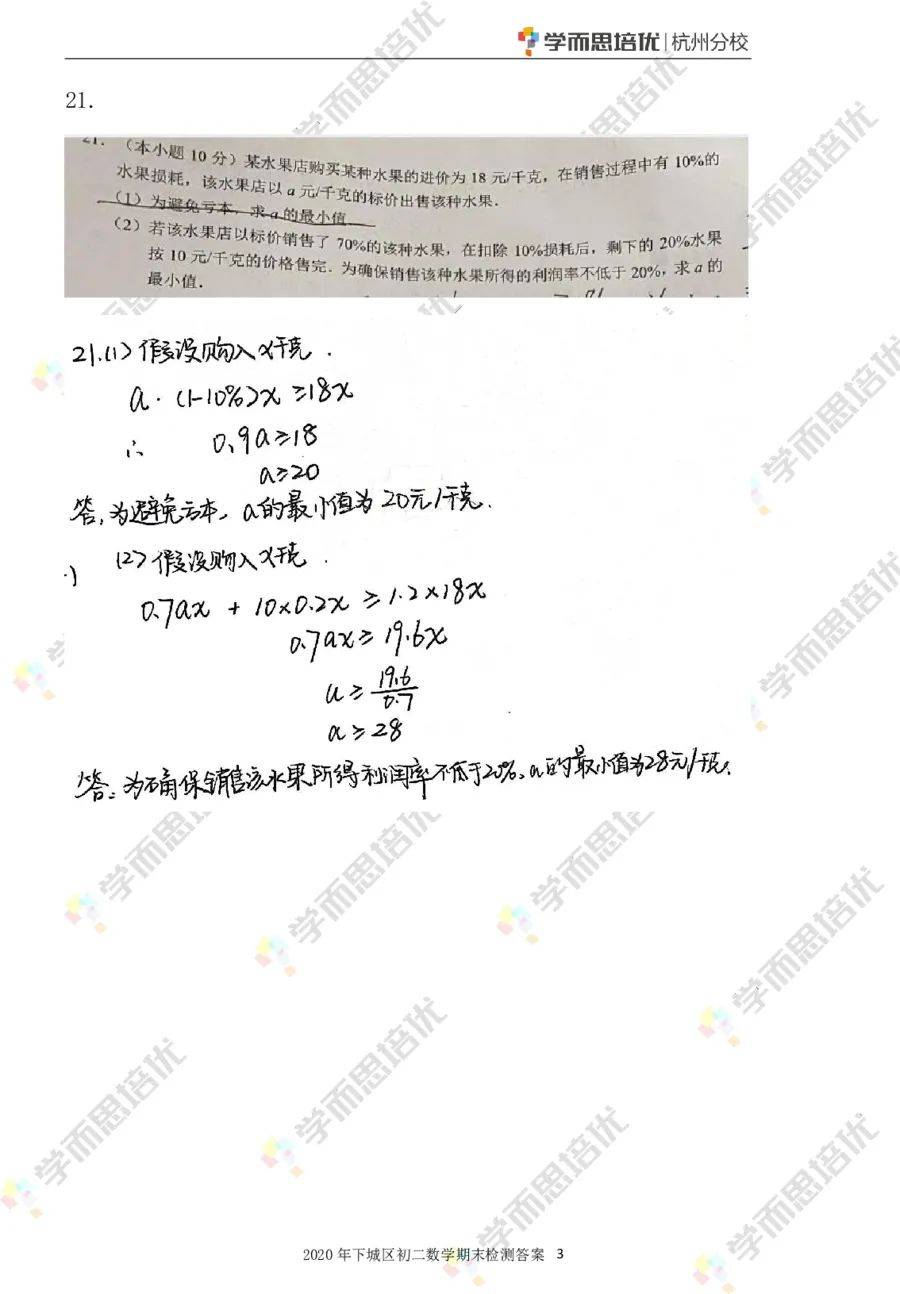 学而思培优|杭州分校
21.
21. （本小题 10 分）某水果店购买某种水果的进价为 18 元/千克，在销售过程中有 10%的
水果损耗，该水果店以 a 元/千克的标价出售该种水果．
（1）为避免亏本，求 a 的最小值．
（2）若该水果店以标价销售了 70%的该种水果，在扣除 10%损耗后，剩下的 20%水果
按 10 元/千克的价格售完．为确保销售该种水果所得的利润率不低于 20%，求 a 的
最小值．
21.(1) 假设购入x千克．
a·(1-10%)x ≥18x
∴ 0.9a≥18
a≥20
答，为避免亏本，a的最小值为20元/千克．
(2) 假设购入x千克．
0.7ax + 10×0.2x ≥ 1.2×18x
0.7ax ≥ 19.6x
a ≥ 19.6/0.7
a ≥ 28
答：为确保销售该水果所得利润率不低于20%，a的最小值为28元/千克．
2020 年下城区初二数学期末检测答案 3